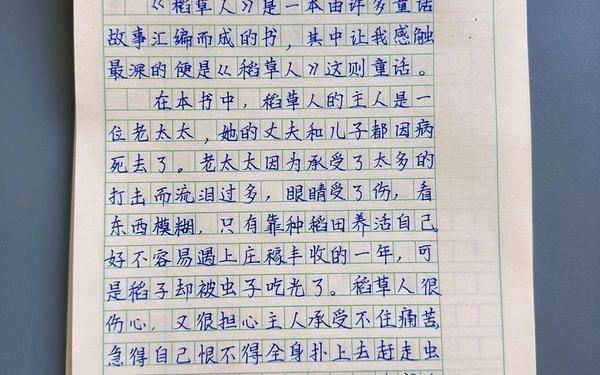 《稻草人》是一本由许多童话
故事汇编而成的书，其中让我感触
最深的便是《稻草人》这则童话。
在本书中，稻草人的主人是一
位老太太，她的丈夫和儿子都因病
死去了。老太太因为承受了太多的
打击而流泪过多，眼睛受了伤，看
东西模糊，只有靠种稻田养活自己
好不容易遇上庄稼丰收的一年，可
是稻子却被虫子吃光了。稻草人很
伤心，又很担心主人承受不住痛苦
急得自己恨不得全身扑上去赶走虫